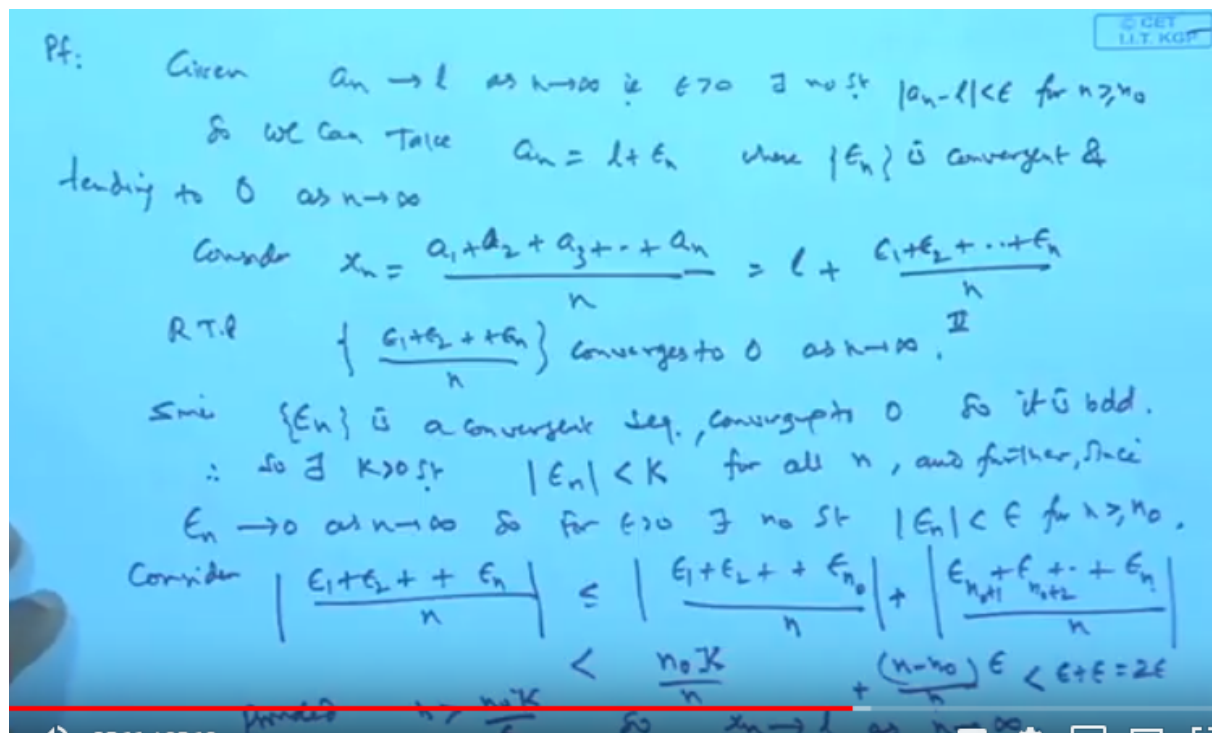 © CET
I.I.T. KGP
Pf: Given an → l as n→∞ ie ε>0 ∃ no st |an-l|<ε for n≥no
So we can Take an = l+εn where {εn} is convergent &
tending to 0 as n→∞
Consider xn = a1+a2+a3+..+an / n = l + ε1+ε2+..+εn / n
R.T.P { ε1+ε2++εn / n } converges to 0 as n→∞. II
Since {εn} is a convergent seq., converges to 0 So it is bdd.
∴ So ∃ K>0 st |εn| < K for all n, and further, since
εn → 0 as n→∞ So for ε>0 ∃ no st |εn| < ε for n≥no.
Consider | ε1+ε2++εn / n | ≤ | ε1+ε2++εno / n | + | εno+1+εno+2+..+εn / n |
< noK / n + (n-no)ε / n < ε+ε=2ε
Provided n> noK / ε So xn→l as n→∞